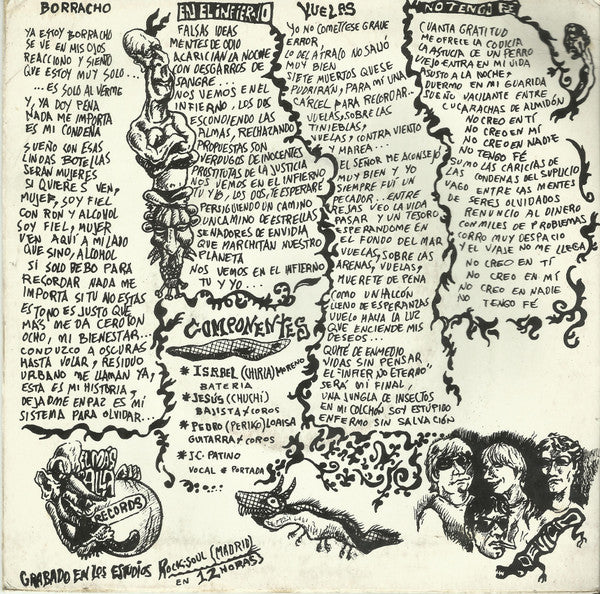 BORRACHO
YA ESTOY BORRACHO
SE VE EN MIS OJOS
REACCIONO Y SIENTO
QUE ESTOY MUY SOLO...
...ES SOLO AL VERME
Y, YA DOY PENA
NADA ME IMPORTA
ES MI CONDENA
SUEÑO CON ESAS
LINDAS BOTELLAS
SERÁN MUJERES
SI QUIERES VEN,
MUJER, SOY FIEL
CON RON Y ALCOHOL
SOY FIEL, MUJER
VEN AQUÍ A MI LADO
QUE SINO, ALCOHOL
SI SOLO BEBO PARA
RECORDAR NADA ME
IMPORTA SI TU NO ESTAS
ESTO NO ES JUSTO QUE
MÁS ME DA CERO CON
OCHO, MI BIENESTAR...
CONDUZCO A OSCURAS
HASTA VOLAR, RESIDUO
URBANO ME LLAMAN YA,
ESTA ES MI HISTORIA,
DEJADME EN PAZ ES MI
SISTEMA PARA OLVIDAR...
EN EL INFIERNO
FALSAS IDEAS
MENTES DE ODIO
ACARICIAN LA NOCHE
CON DESGARROS DE
SANGRE...
NOS VEMOS EN EL
INFIERNO, LOS DIE
ESCONDIENDO LAS
ALMAS, RECHAZANDO
PROPUESTAS SON
VERDUGOS DE INOCENTES
PROSTITUTAS DE LA JUSTICIA
NOS VEMOS EN EL INFIERNO
TU Y YO, LOS DOS, TE ESPERARÉ
PERSIGUIENDO UN CAMINO
UN CAMINO DE ESTRELLAS
SENADORES DE ENVIDIA
QUE MARCHITAN NUESTRO
PLANETA
NOS VEMOS EN EL INFIERNO
TU Y YO...
VUELAS
YO NO COMETIESE GRAVE
ERROR
LO DEL ATRACO NO SALIÓ
MUY BIEN
SIETE MUERTOS QUE SE
PUDRIRÁN, PARA MÍ UNA
CÁRCEL PARA RECORDAR...
VUELAS, SOBRE LAS
TINIEBLAS,
VUELAS, CONTRA VIENTO
Y MAREA...
EL SEÑOR ME ACONSEJÓ
MUY BIEN Y YO
SIEMPRE FUÍ UN
PECADOR... ENTRE
REJAS VEO LA VIDA
PASAR Y UN TESORO
ESPERANDOME EN
EL FONDO DEL MAR
VUELAS, SOBRE LAS
ARENAS, VUELAS,
MUERETE DE PENA
COMO UN HALCÓN
LLENO DE ESPERANZAS
VUELO HACIA LA LUZ
QUE ENCIENDE MIS
DESEOS...
QUITÉ DE ENMEDIO
VIDAS SIN PENSAR
EL "INFIERNO ETERNO"
SERÁ MI FINAL,
UNA JUNGLA DE INSECTOS
EN MI COLCHÓN SOY ESTÚPIDO
ENFERMO SIN SALVACIÓN
NO TENGO FÉ
CUANTA GRATITUD
ME OFRECE LA CODICIA
LA ASTUCIA DE UN PERRO
VIEJO ENTRA EN MI VIDA
ASUSTO A LA NOCHE,
DUERMO EN MI GUARIDA
SUEÑO VACILANTE ENTRE
CUCARACHAS DE ALMIDÓN
NO CREO EN TÍ
NO CREO EN MÍ
NO CREO EN NADIE
NO TENGO FÉ
SUMO LAS CARICIAS DE
LAS CONDENAS DEL SUPLICIO
VAGO ENTRE LAS MENTES
DE SERES OLVIDADOS
RENUNCIO AL DINERO
CON MILES DE PROBLEMAS
CORRO MUY DESPACIO
Y EL VIAJE NO ME LLEGA
NO CREO EN TÍ
NO CREO EN MÍ
NO CREO EN NADIE
NO TENGO FÉ
COMPONENTES
* ISABEL (CHIRLA) MORENO
BATERIA
* JESÚS (CHUCHI)
BAJISTA Y COROS
* PEDRO (PERIKO) LOMISA
GUITARRA Y COROS
* J.C. PATINO
VOCAL Y PORTADA
EL MÁS
ALLÁ
RECORDS
GRABADO EN LOS ESTUDIOS ROCK-SOUL (MADRID)
EN 12 HORAS